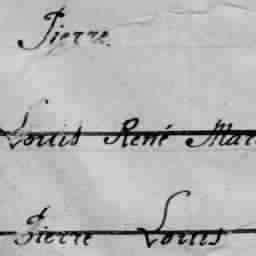 Pierre
Louis René
Pierre Louis